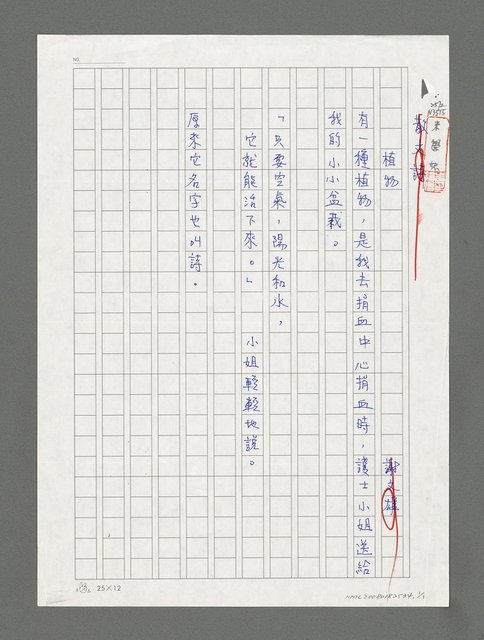 散文詩
植物
謝文雄
有一種植物，是我去捐血中心捐血時，護士小姐送給
我的小小盆栽。
「只要空氣，陽光和水，
它就能活下來。」　　小姐輕輕地說。
原來它名字也叫詩。
NO.
25×12